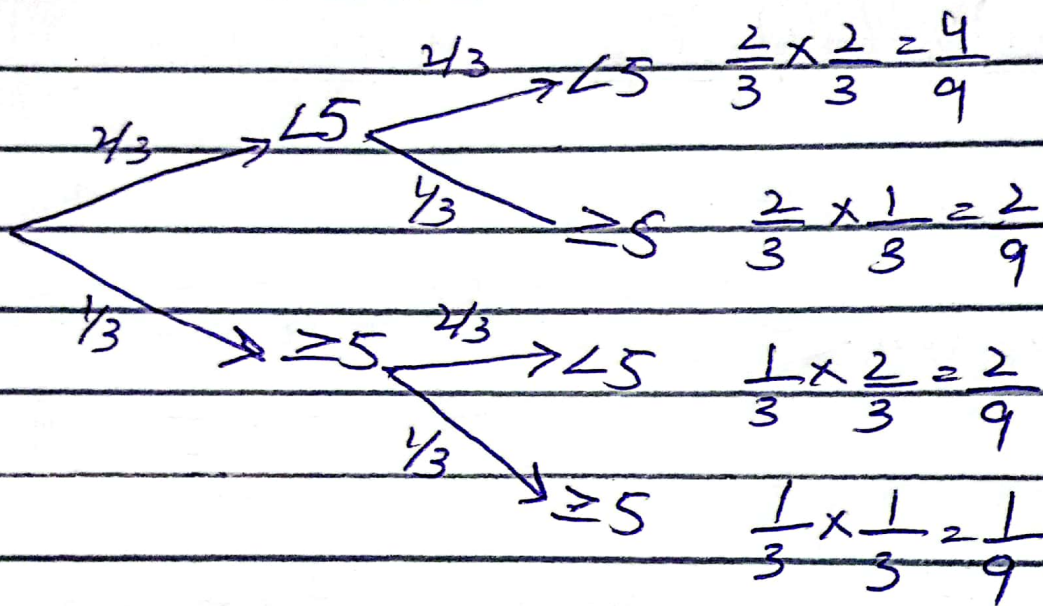 2/3 <5 2/3 × 2/3 = 4/9
2/3 <5
1/3 ≥5 2/3 × 1/3 = 2/9
1/3 ≥5 2/3 <5 1/3 × 2/3 = 2/9
1/3 ≥5 1/3 × 1/3 = 1/9